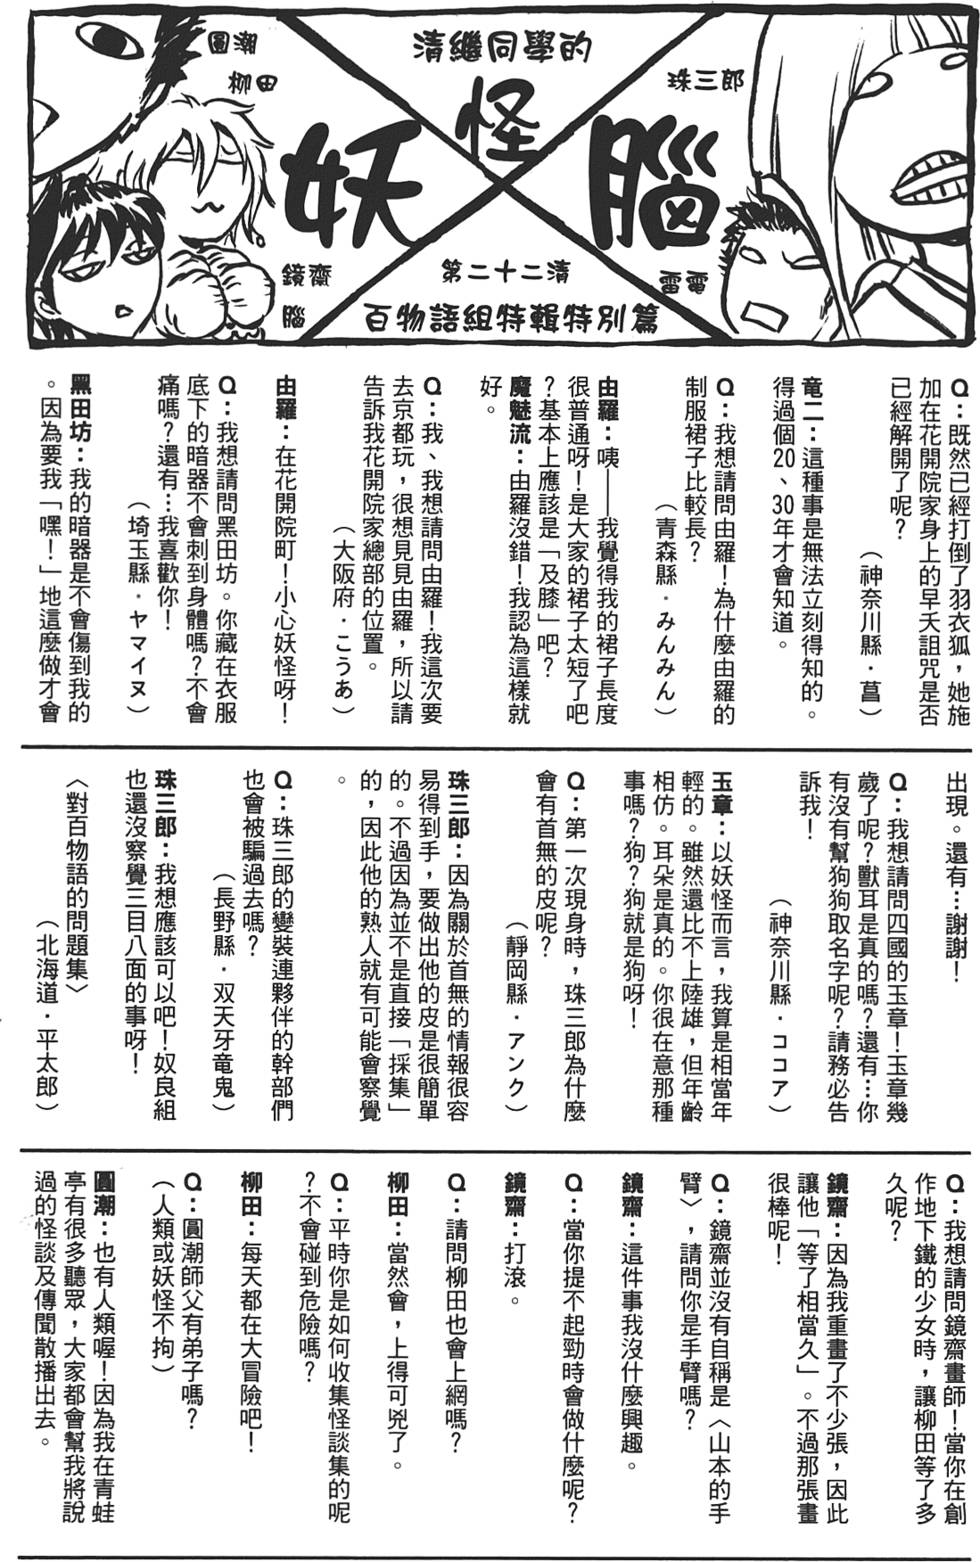 清繼同學的
妖怪腦
第二十二清
百物語組特輯特別篇
珠三郎
雷電
圓潮
柳田
鏡齋
腦
Q：既然已經打倒了羽衣狐，她施
加在花開院家身上的早夭詛咒是否
已經解開了呢？
（神奈川縣・菖）
竜二：這種事是無法立刻得知的。
得過個20、30年才會知道。
Q：我想請問由羅！為什麼由羅的
制服裙子比較長？
（青森縣・みんみん）
由羅：咦——我覺得我的裙子長度
很普通呀！是大家的裙子太短了吧
？基本上應該是「及膝」吧？
魔魅流：由羅沒錯！我認為這樣就
好。
Q：我、我想請問由羅！我這次要
去京都玩，很想見見由羅，所以請
告訴我花開院家總部的位置。
（大阪府・こうあ）
由羅：在花開院町！小心妖怪呀！
Q：我想請問黑田坊。你藏在衣服
底下的暗器不會刺到身體嗎？不會
痛嗎？還有…我喜歡你！
（埼玉縣・ヤマイヌ）
黑田坊：我的暗器是不會傷到我的
。因為要我「嘿！」地這麼做才會
出現。還有…謝謝！
Q：我想請問四國的玉章！玉章幾
歲了呢？獸耳是真的嗎？還有…你
有沒有幫狗狗取名字呢？請務必告
訴我！
（神奈川縣・ココア）
玉章：以妖怪而言，我算是相當年
輕的。雖然還比不上陸雄，但年齡
相仿。耳朵是真的。你很在意那種
事嗎？狗？狗就是狗呀！
Q：第一次現身時，珠三郎為什麼
會有首無的皮呢？
（靜岡縣・アンク）
珠三郎：因為關於首無的情報很容
易得到手，要做出他的皮是很簡單
的。不過因為並不是直接「採集」
的，因此他的熟人就有可能會察覺
。
Q：珠三郎的變裝連夥伴的幹部們
也會被騙過去嗎？
（長野縣・双天牙竜鬼）
珠三郎：我想應該可以吧！奴良組
也還沒察覺三目八面的事呀！
〈對百物語的問題集〉
（北海道・平太郎）
Q：我想請問鏡齋畫師！當你在創
作地下鐵的少女時，讓柳田等了多
久呢？
鏡齋：因為我重畫了不少張，因此
讓他「等了相當久」。不過那張畫
很棒呢！
Q：鏡齋並沒有自稱是〈山本的手
臂〉，請問你是手臂嗎？
鏡齋：這件事我沒什麼興趣。
Q：當你提不起勁時會做什麼呢？
鏡齋：打滾。
Q：請問柳田也會上網嗎？
柳田：當然會，上得可兇了。
Q：平時你是如何收集怪談集的呢
？不會碰到危險嗎？
柳田：每天都在大冒險吧！
Q：圓潮師父有弟子嗎？
（人類或妖怪不拘）
圓潮：也有人類喔！因為我在青蛙
亭有很多聽眾，大家都會幫我將說
過的怪談及傳聞散播出去。